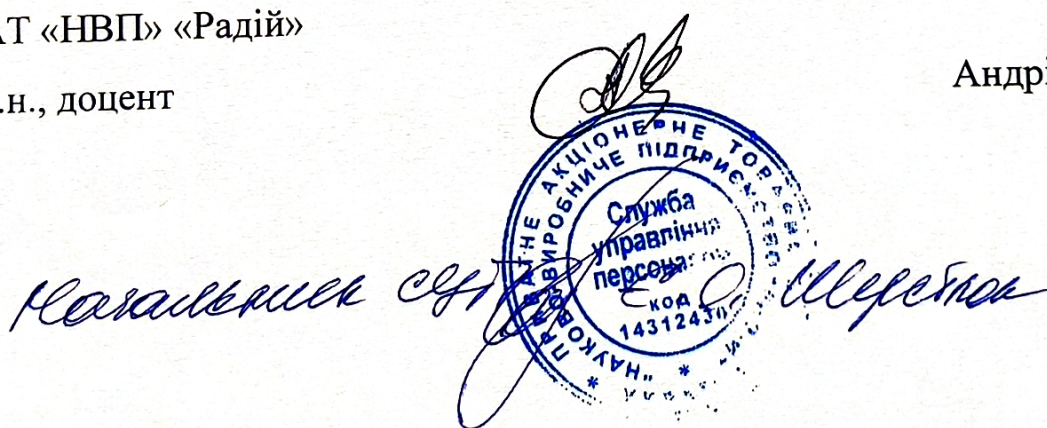 АТ «НВП» «Радій»
.н., доцент
Андрі
ПРИВАТНЕ АКЦІОНЕРНЕ ТОВА
"НАУКОВО-ВИРОБНИЧЕ ПІДПРИЄМСТВО
Служба
управління
персона
код
1431243
Начальник